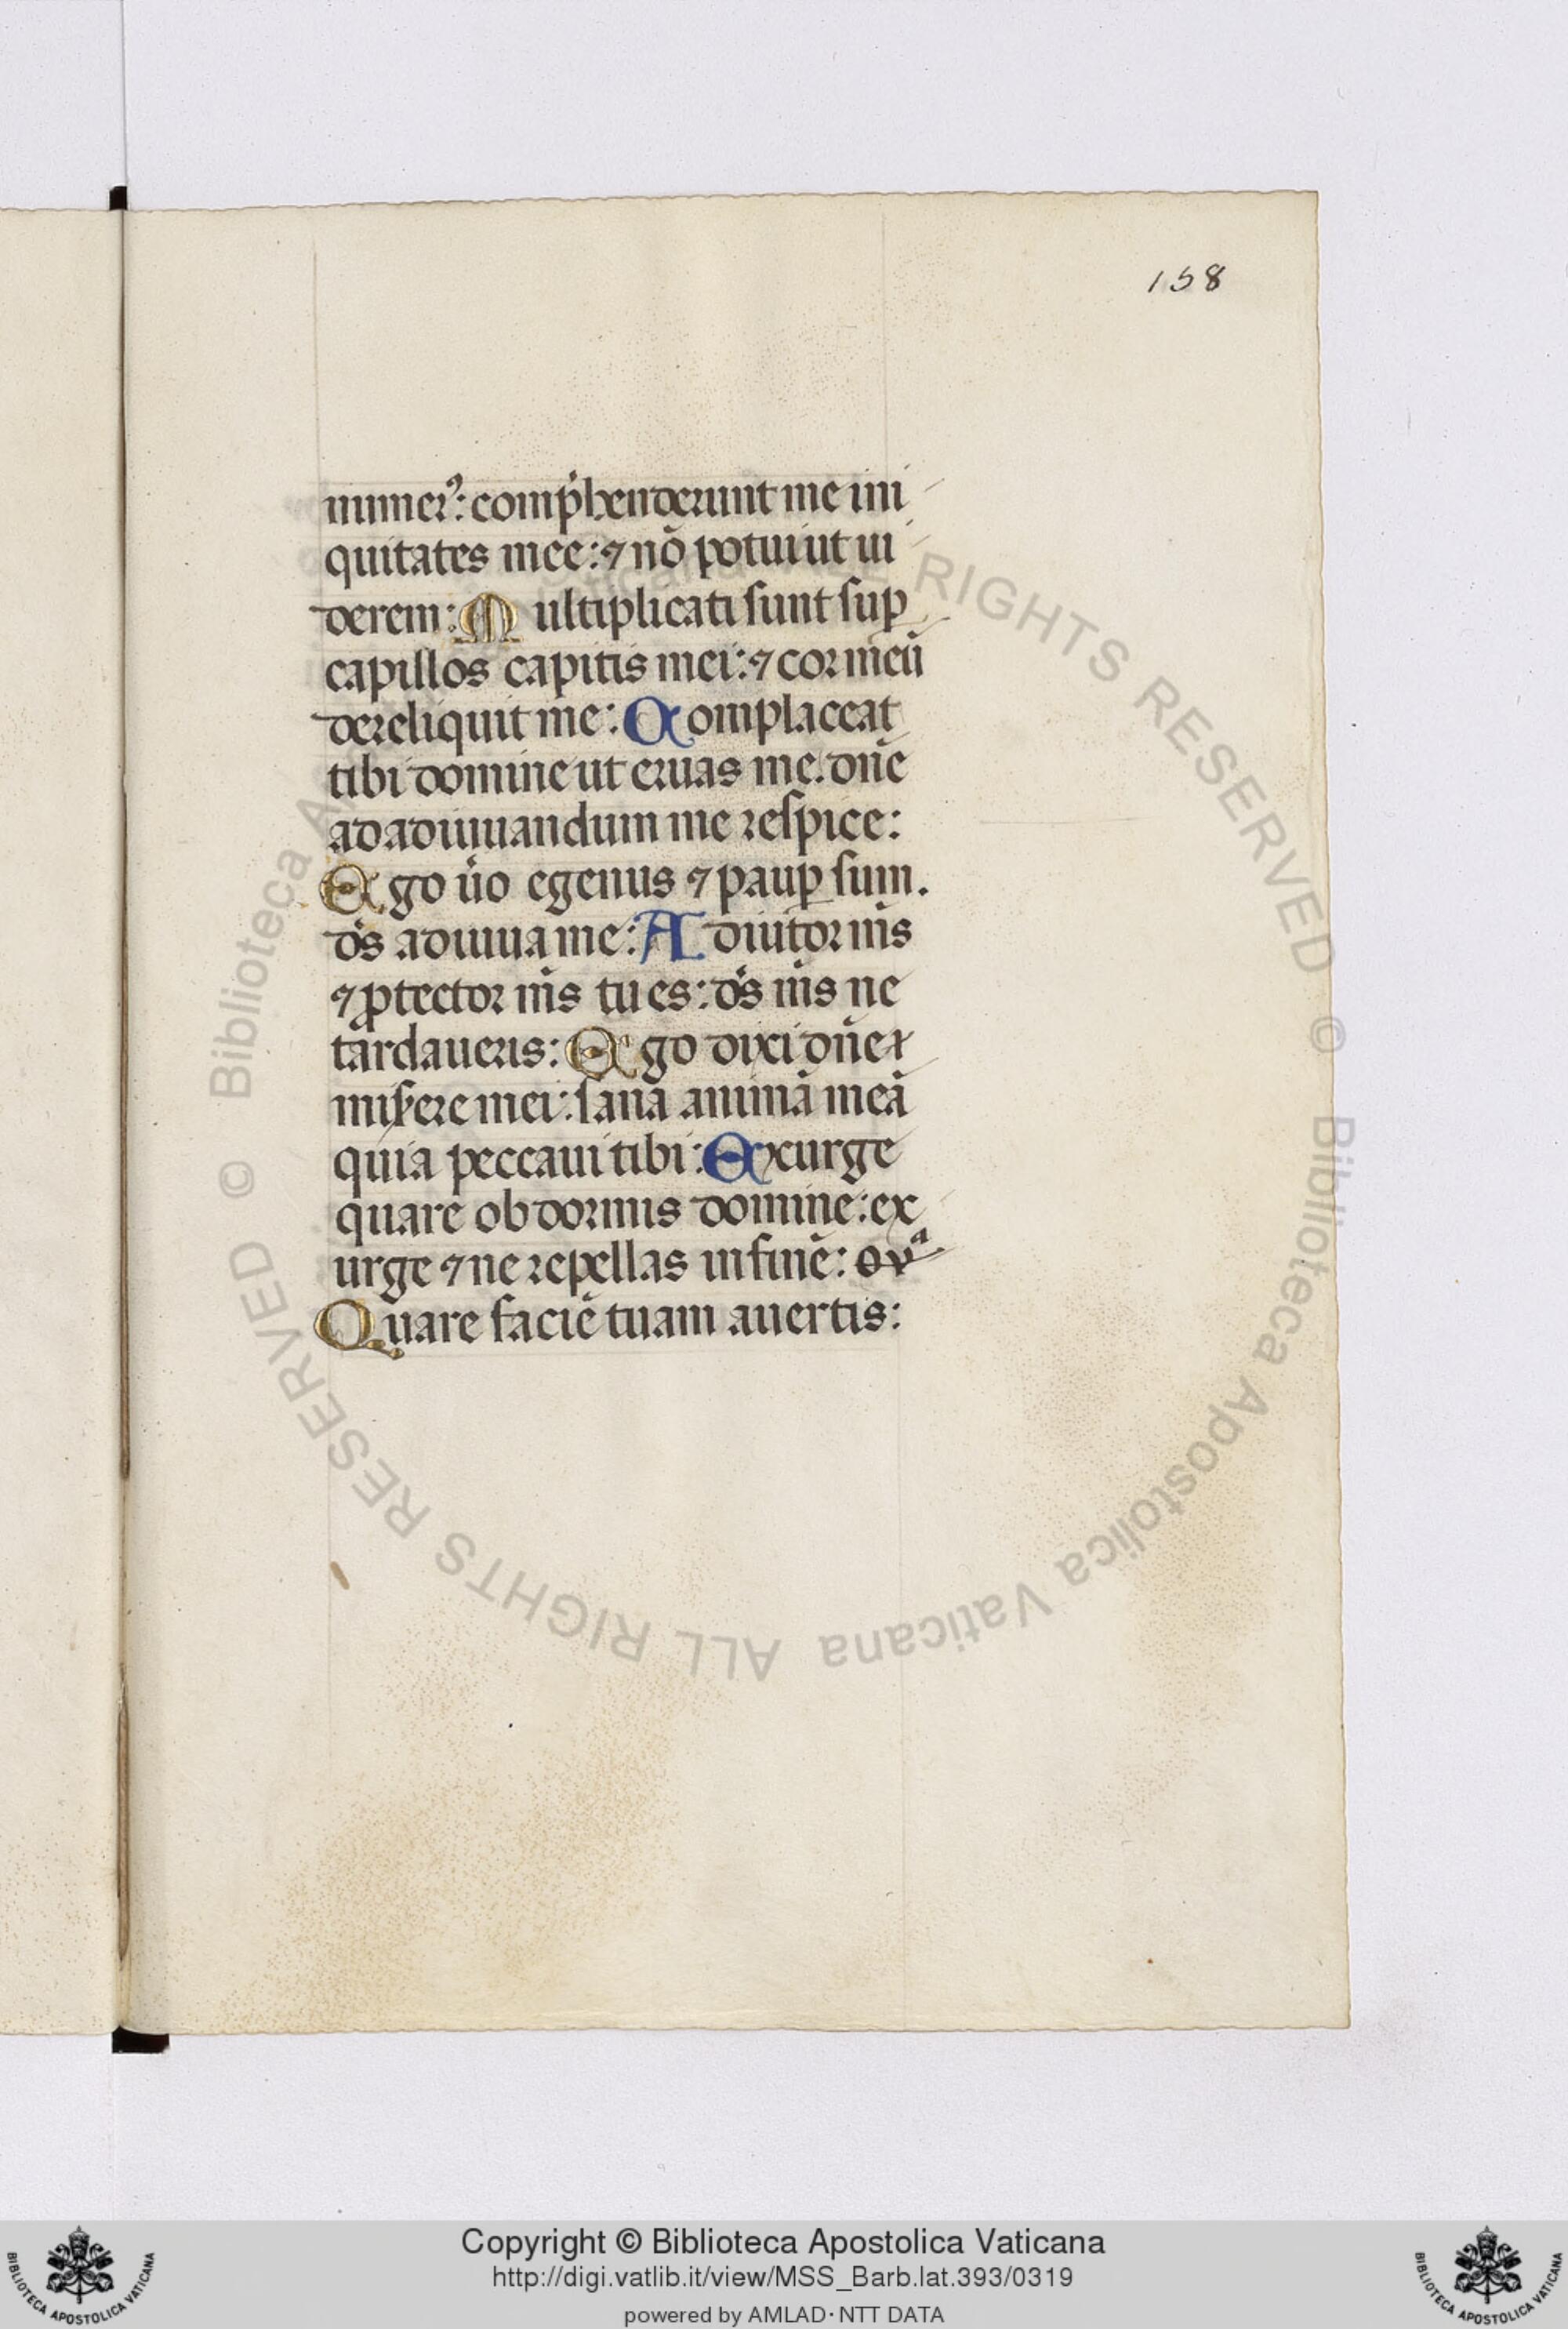 158
numerꝰ: comp̾henderunt me ini
quitates mee: ⁊ nō potui ut ui
derem: Multiplicati sunt suꝑ
capillos capitis mei: ⁊ cor meū
dereliquit me: Complaceat
tibi domine ut eruas me. dn̄e
ad adiuuandum me respice:
Ego u̾o egenus ⁊ pauꝑ sum.
ds̄ adiuua me: Adiutor m̄s
⁊ ꝓtector m̄s tu es: ds̄ m̄s ne
tardaueris: Ego dixi dn̄e
mis̾ere mei: sana animā meā
quia peccaui tibi: Exurge
quare obdormis domine: ex
urge ⁊ ne repellas in finē:
Quare faciē tuam auertis:
© Biblioteca Apostolica Vaticana ALL RIGHTS RESERVED © Biblioteca Apostolica Vaticana ALL RIGHTS RESERVED
Copyright © Biblioteca Apostolica Vaticana
http://digi.vatlib.it/view/MSS_Barb.lat.393/0319
powered by AMLAD·NTT DATA
BIBLIOTECA APOSTOLICA VATICANA
BIBLIOTECA APOSTOLICA VATICANA